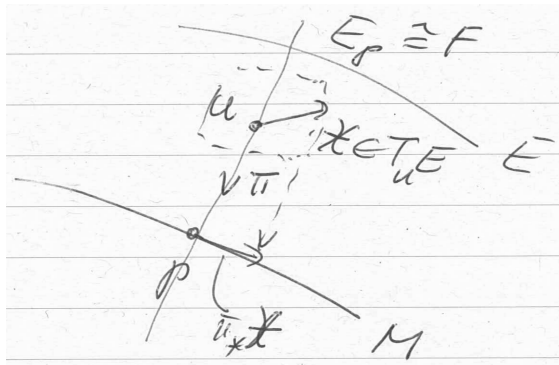 E_p ≅ F
u
X ∈ T_u E
E
π
p
π_* X
M